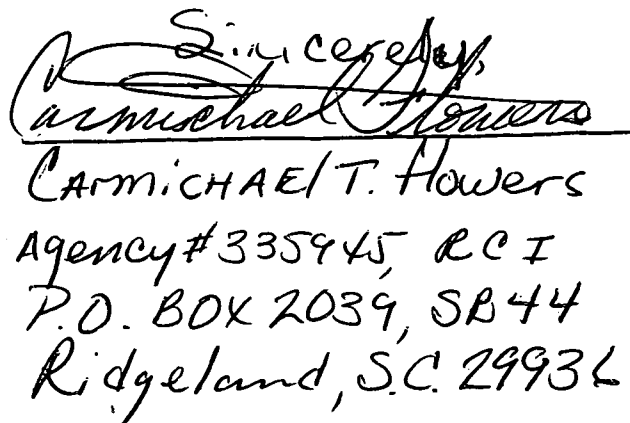 Sincerely,
Carmischael Flowers
CArmiCHAEl T. flowers
Agency# 335945, RCI
P.O. BOX 2039, SB44
Ridgeland, S.C. 29936